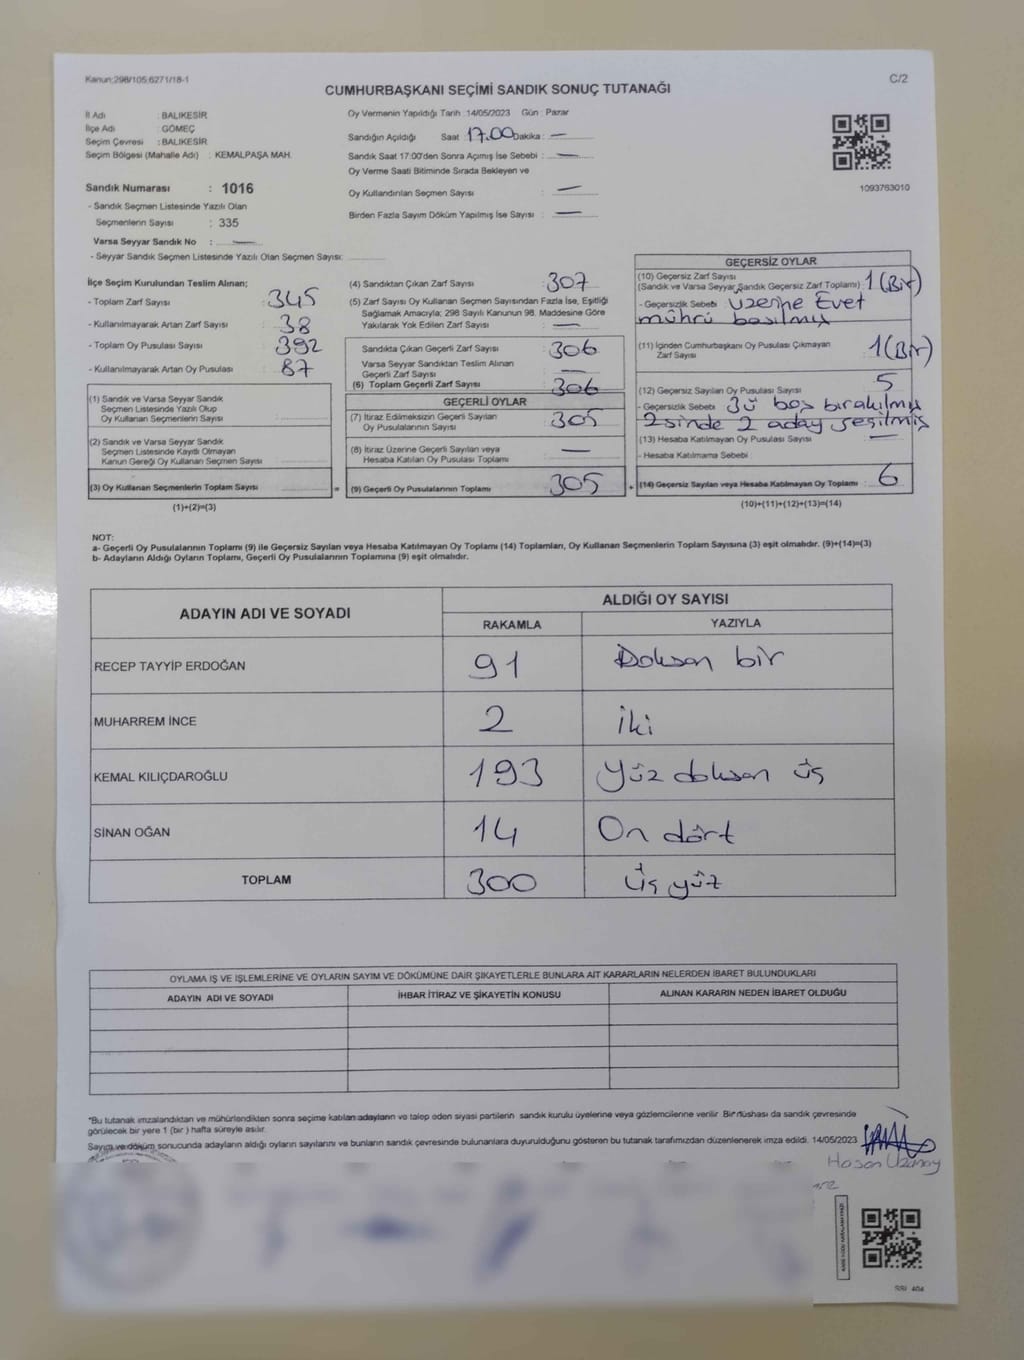 Kanun:298/105;6271/18-1
C/2
CUMHURBAŞKANI SEÇİMİ SANDIK SONUÇ TUTANAĞI
İl Adı : BALIKESİR
İlçe Adı : GÖMEÇ
Seçim Çevresi : BALIKESİR
Seçim Bölgesi (Mahalle Adı) : KEMALPAŞA MAH.
Sandık Numarası : 1016
- Sandık Seçmen Listesinde Yazılı Olan
Seçmenlerin Sayısı : 335
Varsa Seyyar Sandık No : —
- Seyyar Sandık Seçmen Listesinde Yazılı Olan Seçmen Sayısı:
Oy Vermenin Yapıldığı Tarih :14/05/2023 Gün : Pazar
Sandığın Açıldığı Saat 17.00 Dakika : —
Sandık Saat 17:00'den Sonra Açımış İse Sebebi : —
Oy Verme Saati Bitiminde Sırada Bekleyen ve
Oy Kullandırılan Seçmen Sayısı : —
Birden Fazla Sayım Döküm Yapılmış İse Sayısı : —
1093763010
İlçe Seçim Kurulundan Teslim Alınan;
- Toplam Zarf Sayısı : 345
- Kullanılmayarak Artan Zarf Sayısı : 38
- Toplam Oy Pusulası Sayısı : 392
- Kullanılmayarak Artan Oy Pusulası : 87
(1) Sandık ve Varsa Seyyar Sandık
Seçmen Listesinde Yazılı Olup
Oy Kullanan Seçmenlerin Sayısı :
(2) Sandık ve Varsa Seyyar Sandık
Seçmen Listesinde Kayıtlı Olmayan
Kanun Gereği Oy Kullanan Seçmen Sayısı :
(3) Oy Kullanan Seçmenlerin Toplam Sayısı :
(1)+(2)=(3)
(4) Sandıktan Çıkan Zarf Sayısı : 307
(5) Zarf Sayısı Oy Kullanan Seçmen Sayısından Fazla İse, Eşitliği
Sağlamak Amacıyla; 298 Sayılı Kanunun 98. Maddesine Göre
Yakılarak Yok Edilen Zarf Sayısı : —
Sandıkta Çıkan Geçerli Zarf Sayısı : 306
Varsa Seyyar Sandıktan Teslim Alınan
Geçerli Zarf Sayısı : —
(6) Toplam Geçerli Zarf Sayısı : 306
GEÇERLİ OYLAR
(7) İtiraz Edilmeksizin Geçerli Sayılan
Oy Pusulalarının Sayısı : 305
(8) İtiraz Üzerine Geçerli Sayılan veya
Hesaba Katılan Oy Pusulası Toplamı : —
= (9) Geçerli Oy Pusulalarının Toplamı : 305
GEÇERSİZ OYLAR
(10) Geçersiz Zarf Sayısı
(Sandık ve Varsa Seyyar Sandık Geçersiz Zarf Toplamı) : 1 (Bir)
- Geçersizlik Sebebi : üzerine Evet
mührü basılmış
(11) İçinden Cumhurbaşkanı Oy Pusulası Çıkmayan
Zarf Sayısı : 1 (Bir)
(12) Geçersiz Sayılan Oy Pusulası Sayısı : 5
- Geçersizlik Sebebi : 3ü boş bırakılmış
2sinde 2 aday seçilmiş
(13) Hesaba Katılmayan Oy Pusulası Sayısı : —
- Hesaba Katılmama Sebebi :
+ (14) Geçersiz Sayılan veya Hesaba Katılmayan Oy Toplamı : 6
(10)+(11)+(12)+(13)=(14)
NOT:
a- Geçerli Oy Pusulalarının Toplamı (9) ile Geçersiz Sayılan veya Hesaba Katılmayan Oy Toplamı (14) Toplamları, Oy Kullanan Seçmenlerin Toplam Sayısına (3) eşit olmalıdır. (9)+(14)=(3)
b- Adayların Aldığı Oyların Toplamı, Geçerli Oy Pusulalarının Toplamına (9) eşit olmalıdır.
ADAYIN ADI VE SOYADI ALDIĞI OY SAYISI
RAKAMLA YAZIYLA
RECEP TAYYİP ERDOĞAN 91 Doksan bir
MUHARREM İNCE 2 İki
KEMAL KILIÇDAROĞLU 193 Yüz doksan üç
SİNAN OĞAN 14 On dört
TOPLAM 300 üç yüz
OYLAMA İŞ VE İŞLEMLERİNE VE OYLARIN SAYIM VE DÖKÜMÜNE DAİR ŞİKAYETLERLE BUNLARA AİT KARARLARIN NELERDEN İBARET BULUNDUKLARI
ADAYIN ADI VE SOYADI İHBAR İTİRAZ VE ŞİKAYETİN KONUSU ALINAN KARARIN NEDEN İBARET OLDUĞU
*Bu tutanak imzalandıktan ve mühürlendikten sonra seçime katılan adayların ve talep eden siyasi partilerin sandık kurulu üyelerine veya gözlemcilerine verilir. Bir nüshası da sandık çevresinde
görülecek bir yere 1 (bir) hafta süreyle asılır.
Sayım ve döküm sonucunda adayların aldığı oyların sayılarını ve bunların sandık çevresinde bulunanlara duyurulduğunu gösteren bu tutanak tarafımızdan düzenlenerek imza edildi. 14/05/2023
Hasan